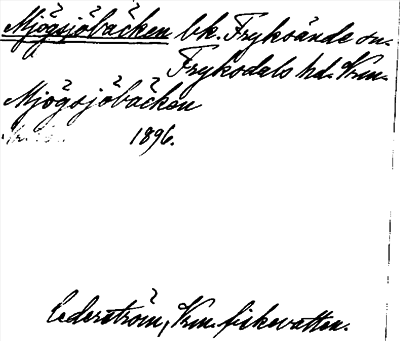 Mjögsjöbäcken bk. Fryksände sn.
Fryksdals hd. Vrm.
Mjögsjöbäcken
1896.
Cederström, Vrm. fiskevatten.